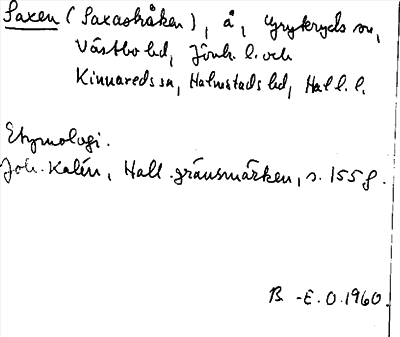 Saxen (Saxaokråken), å, Gryteryds sn,
Västbo hd, Jönk. l. och
Kinnareds sn, Halmstads hd, Hall. l.
Etymologi.
Joh. Kalén, Hall. gränsmärken, s. 155 f.
B-E. O. 1960.